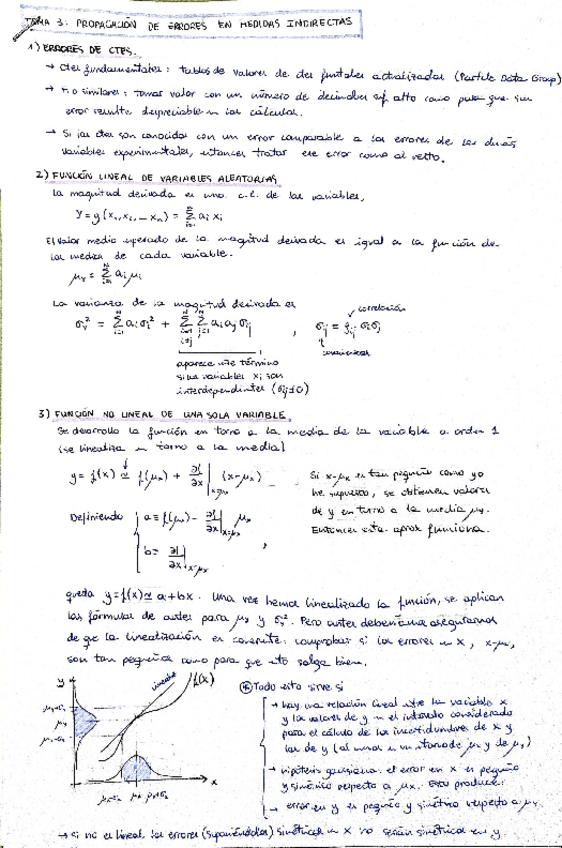 TEMA 3: PROPAGACIÓN DE ERRORES EN MEDIDAS INDIRECTAS
1) ERRORES DE CTES.
→ Ctes fundamentales: tablas de valores de ctes fundales actualizadas (Particle Data Group)
→ π o similares: tomar valor con un número de decimales suf. alto como para que su
error resulte despreciable en los cálculos.
→ Si las ctes son conocidas con un error comparable a los errores de las demás
variables experimentales, entonces tratar ese error como al resto.
2) FUNCIÓN LINEAL DE VARIABLES ALEATORIAS
La magnitud derivada es una c.l. de las variables,
y = g(x₁, x₂, ... xₙ) = Σ aᵢ xᵢ
El valor medio esperado de la magnitud derivada es igual a la función de
las medias de cada variable.
μᵧ = Σ aᵢ μᵢ
La varianza de la magnitud derivada es
correlación
σᵧ² = Σ aᵢ σᵢ² + Σ Σ aᵢ aⱼ σᵢⱼ , σᵢⱼ = ρᵢⱼ σᵢ σⱼ
covarianza
aparece este término
si las variables xᵢ son
interdependientes (σᵢⱼ≠0)
3) FUNCIÓN NO LINEAL DE UNA SOLA VARIABLE.
Se desarrolla la función en torno a la media de la variable a orden 1
(se linealiza en torno a la media)
y = f(x) ≃ f(μₓ) + ∂f/∂x |x=μₓ (x-μₓ)
Si x-μₓ es tan pequeño como yo
he supuesto, se obtienen valores
de y en torno a la media μᵧ.
Entonces esta aprox funciona.
Definiendo a = f(μₓ) - ∂f/∂x |x=μₓ μₓ
b = ∂f/∂x |x=μₓ ,
queda y=f(x)≃ a+bx. Una vez hemos linealizado la función, se aplican
las fórmulas de antes para μᵧ y σᵧ². Pero antes deberíamos asegurarnos
de que la linealización es coherente: comprobar si los errores en x, x-μₓ,
son tan pequeños como para que esto salga bien.
y
lineal
f(x)
μᵧ
x
μₓ
⊛ Todo esto sirve si
→ hay una relación lineal entre la variable x
y los valores de y en el intervalo considerado
para el cálculo de las incertidumbres de x y
las de y (al menos en un entorno de μₓ y de μᵧ)
→ hipótesis gaussiana: el error en x es pequeño
y simétrico respecto a μₓ. Esto produce:
→ error en y es pequeño y simétrico respecto a μᵧ.
→ si no es lineal los errores (suponiéndolos) simétricos en x no serán simétricos en y.